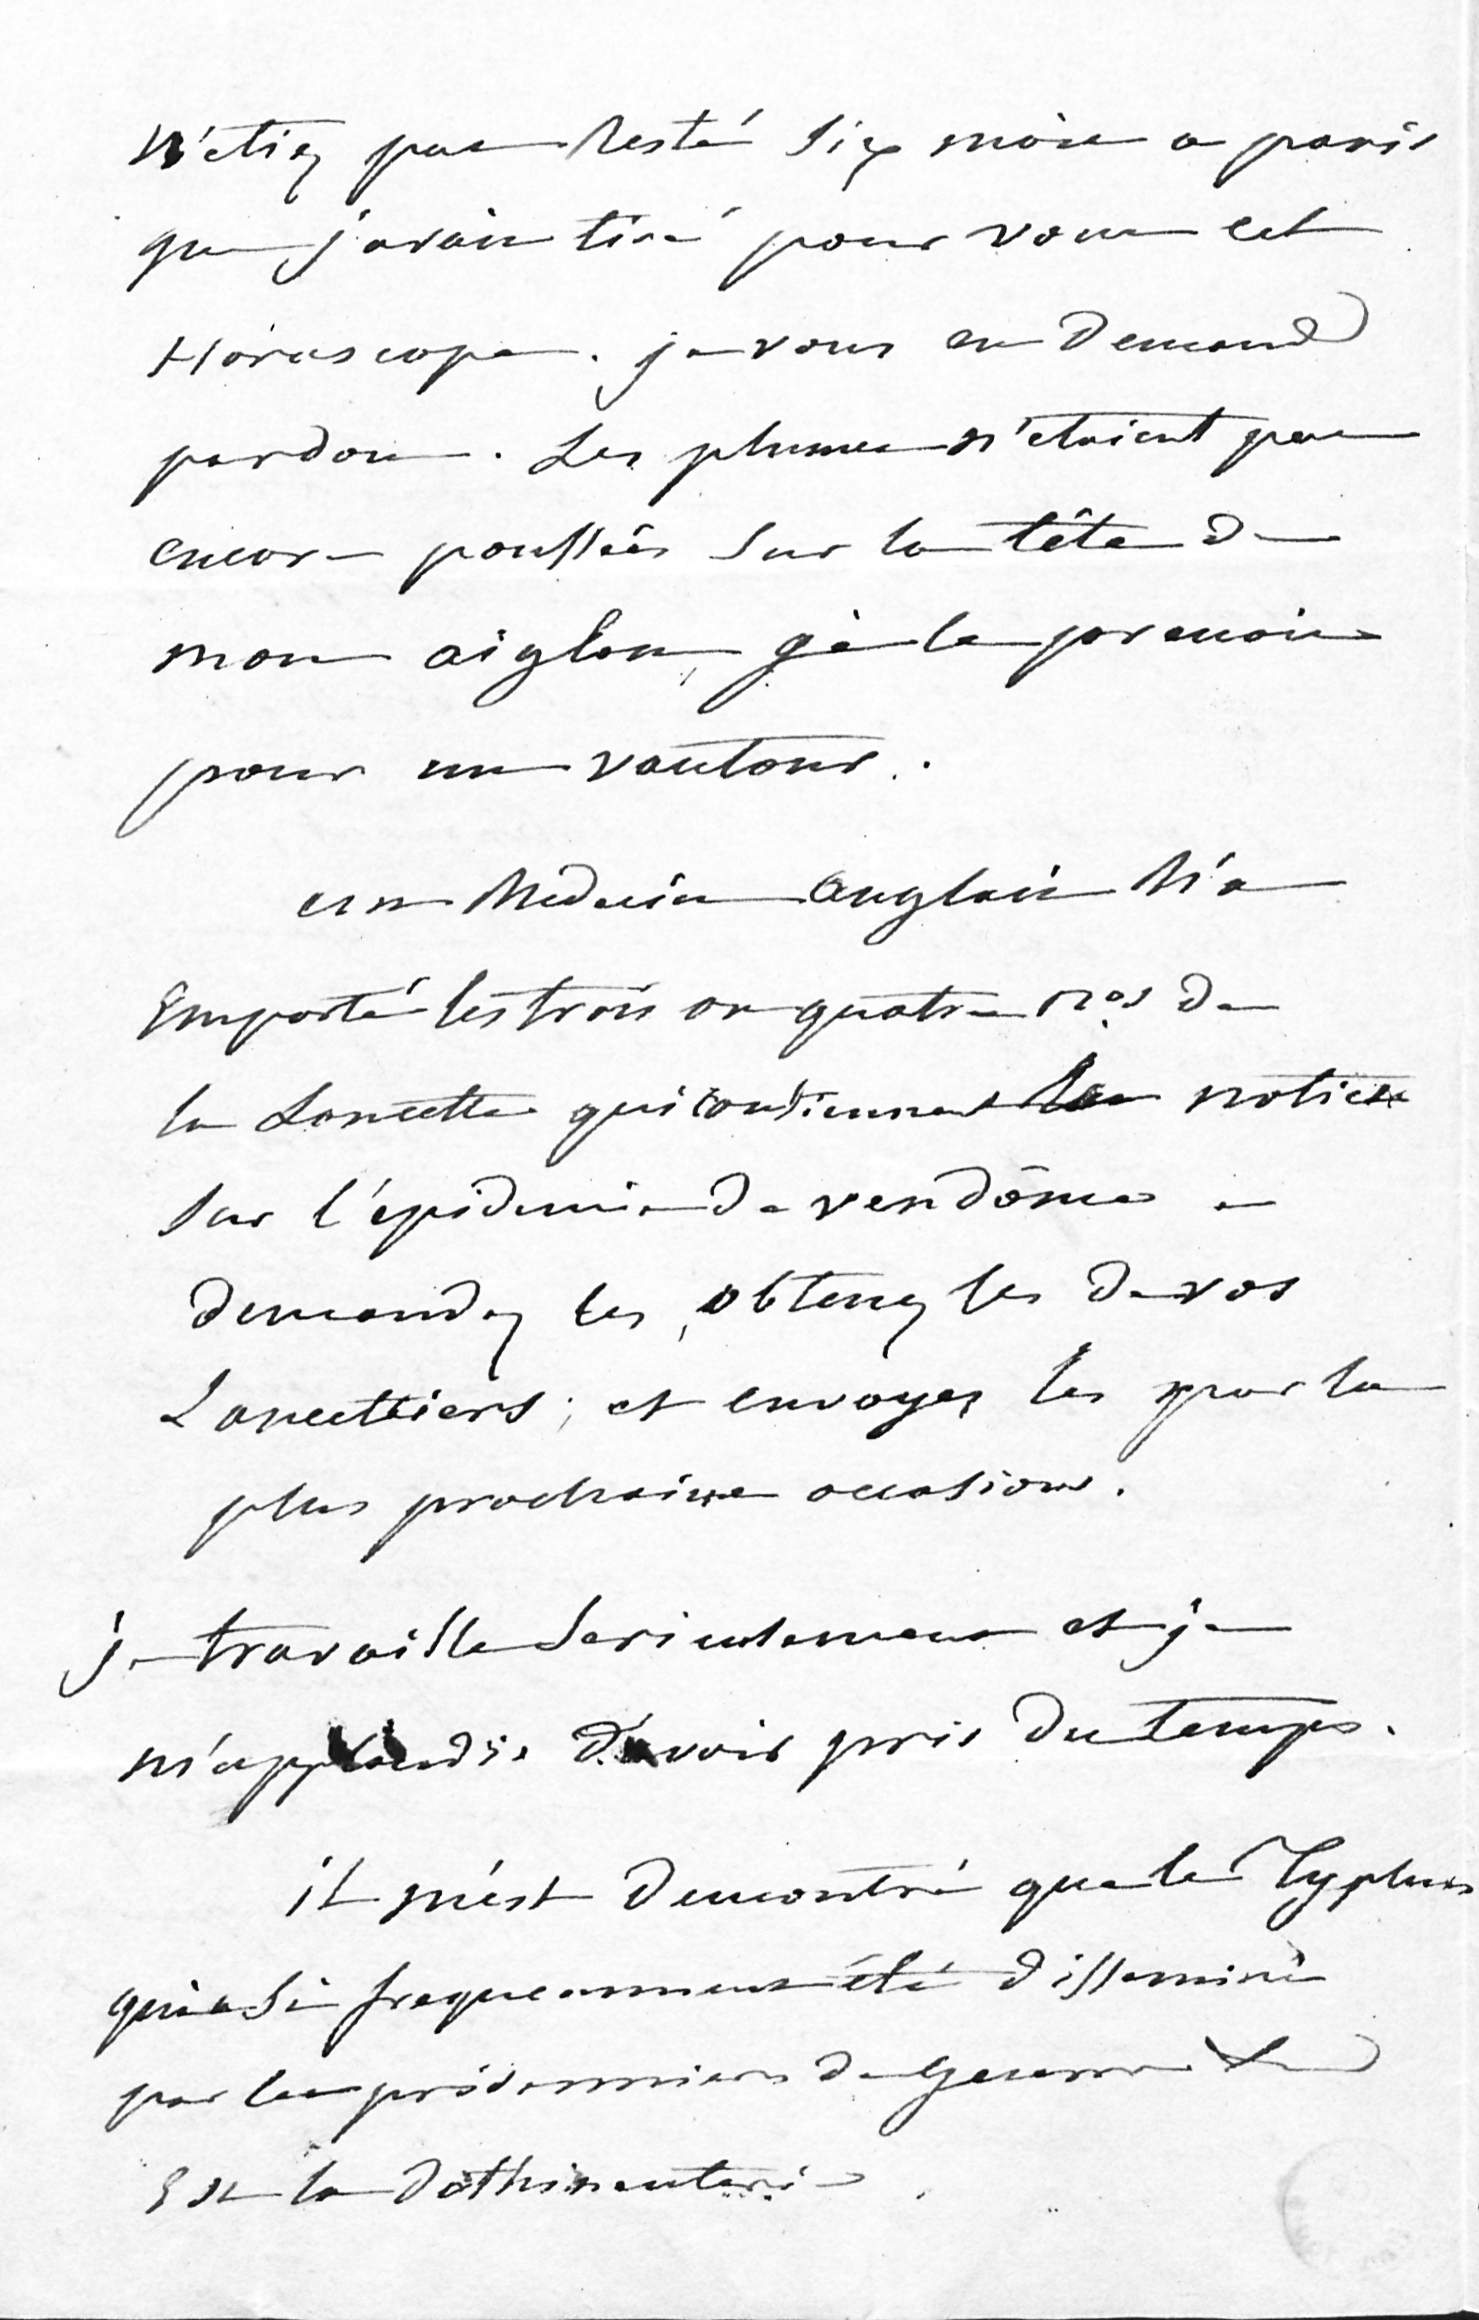 n'étiez pas resté six mois a paris
que j'avais tiré pour vous cet
Horoscope. je vous en demande
pardon. Les plumes n'étaient pas
encore poussées sur la tête de
mon aiglon, je le prenois
pour un vautour.
un Médecin anglais m'a
Emporté les trois ou quatre nos de
la Lancette qui contiennent les notices
sur l'épidemie de vendôme -
demandez les, obtenez les de vos
Lancettiers; et envoyez les par la
plus prochaine occasion.
je travaille serieusement et je
m'applaudis d'avoir pris du temps.
il m'est demontré que le Typhus
qui a si frequemment été disseminé
par les prisonniers de guerre &
Est la dothinenterie